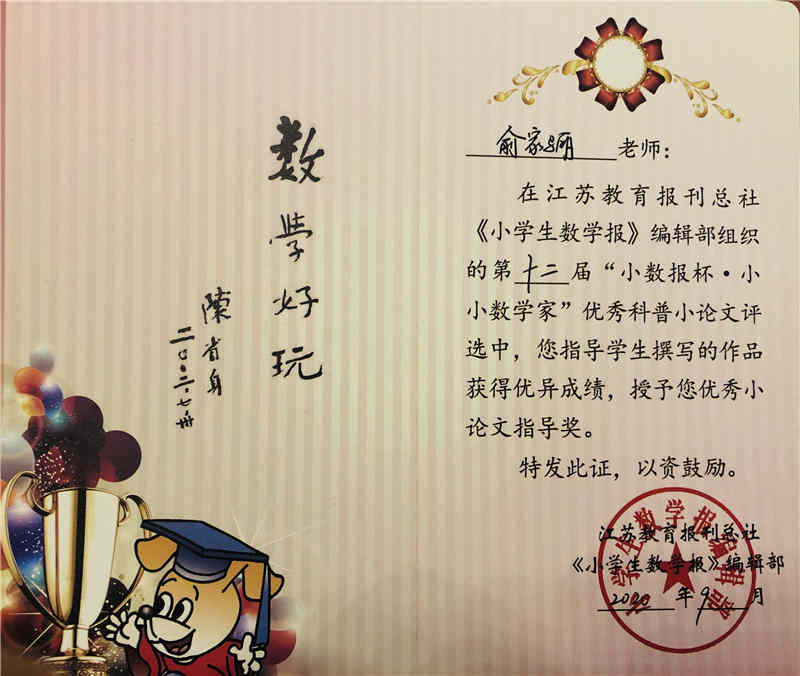 数学好玩
陳省身
俞家 老师：
在江苏教育报刊总社
《小学生数学报》编辑部组织
的第十二届“小数报杯·小
小数学家”优秀科普小论文评
选中，您指导学生撰写的作品
获得优异成绩，授予您优秀小
论文指导奖。
特发此证，以资鼓励。
江苏教育报刊总社
《小学生数学报》编辑部
2020年9月
小学生数学报编辑部